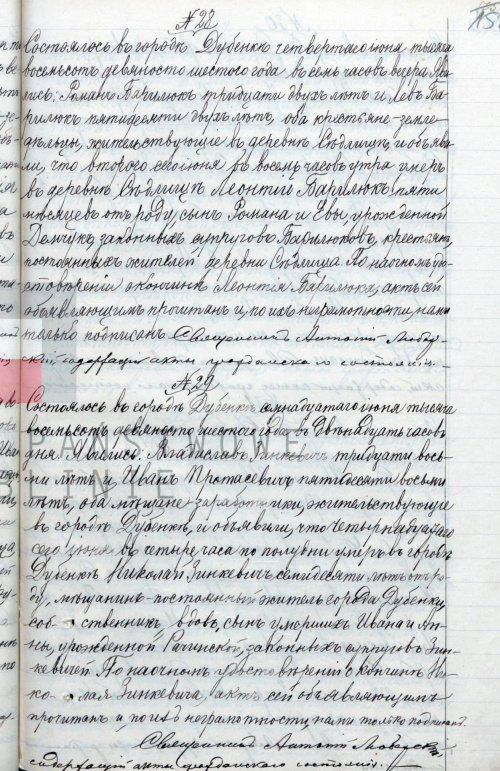 № 28
Состоялось въ городѣ Дубенкѣ четвертаго іюня тысяча
восемьсотъ девяносто шестого года въ семь часовъ вечера. Яви
лись: Романъ Барилюкъ тридцати двухъ лѣтъ и Левъ Ба-
рилюкъ пятидесяти двухъ лѣтъ, оба крестьяне-земле-
дѣльцы, жительствующіе въ деревнѣ Сѣдлищѣ, и объяви-
ли, что второго сего іюня въ восемь часовъ утра умеръ
въ деревнѣ Сѣдлищѣ Леонтій Барилюкъ пяти
мѣсяцевъ отъ роду, сынъ Романа и Евы, урожденной
законныхъ супруговъ Барилюковъ, крестьянъ,
постоянныхъ жителей деревни Сѣдлища. По наочномъ удо-
стовѣреніи о кончинѣ Леонтія Барилюка, актъ сей
объявляющимъ прочитанъ и, по ихъ неграмотности, нами
только подписанъ. Священникъ Антоній
содержащій акты гражданскаго состоянія.
№ 29
Состоялось въ городѣ Дубенкѣ семнадцатаго іюня тысяча
восемьсотъ девяносто шестого года въ двѣнадцать часовъ
дня. Явились: Владиславъ Зинкевичъ тридцати вось-
ми лѣтъ и Иванъ Протасевичъ пятидесяти восьми
лѣтъ, оба мѣщане-заработники, жительствующіе
въ городѣ Дубенкѣ, и объявили, что четырнадцатаго
сего іюня въ четыре часа по полудни умеръ въ городѣ
Дубенкѣ Николай Зинкевичъ семидесяти лѣтъ отъ ро-
ду, мѣщанинъ-постоянный житель города Дубенки,
собственникъ, вдовъ, сынъ умершихъ Ивана и Ан-
ны, урожденной законныхъ супруговъ Зин-
кевичей. По наочномъ удостовѣреніи о кончинѣ Ни-
колая Зинкевича, актъ сей объявляющимъ
прочитанъ и, по ихъ неграмотности, нами только подписанъ.
Священникъ Антоній
содержащій акты гражданскаго состоянія.